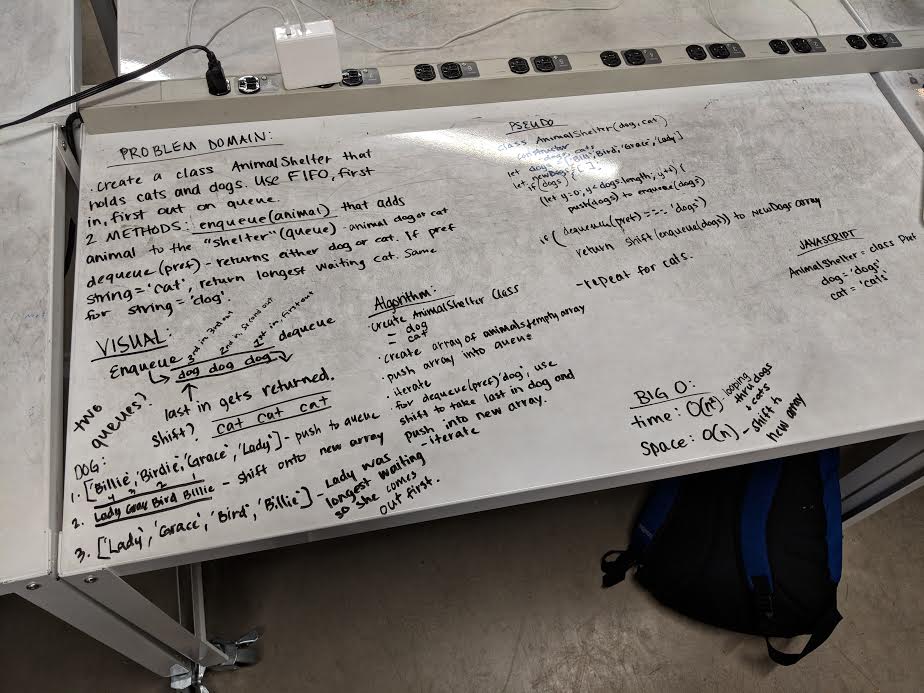 PROBLEM DOMAIN:
. Create a class AnimalShelter that
holds cats and dogs. Use FIFO, first
in, first out on queue.
2 METHODS: enqueue(animal) that adds
animal to the "shelter" (queue) - animal dog or cat
dequeue (pref) - returns either dog or cat. If pref
string = 'cat', return longest waiting cat. Same
for string = 'dog'.
VISUAL:
3rd in, 3rd out
2nd in, second out
1st in, first out
Enqueue
dequeue
dog dog dog
last in gets returned.
shift?
cat cat cat
two
queues?
DOG:
1. ['Billie, 'Birdie, 'Grace', 'Lady'] - push to queue
4 3 2 1
2. Lady Grace Bird Billie - shift onto new array
3. ['Lady', 'Grace', 'Bird', 'Billie'] - Lady was
longest waiting
so she comes
out first.
Algorithm:
. Create AnimalShelter Class
= dog
cat
. create array of animals, empty array
. push array into queue
. iterate
for dequeue(pref) 'dog', use
shift to take last in dog and
push into new array.
- iterate
PSEUDO
class AnimalShelter (dog, cat)
constructor
let dogs = ['Billi', 'Bird', 'Grace', 'Lady']
let newDogs = [ ];
if (dogs) {
(let y=0; y < dogs.length; y++) {
push(dogs) to enqueue(dogs)
if (dequeue(pref) === 'dogs')
return shift(enqueue(dogs)) to newDogs array
- repeat for cats.
JAVASCRIPT
AnimalShelter = class Pref
dog = 'dogs'
cat = 'cats'
BIG O:
time: O(n²) - looping
thru dogs
+ cats
space: O(n) - shift to
new array